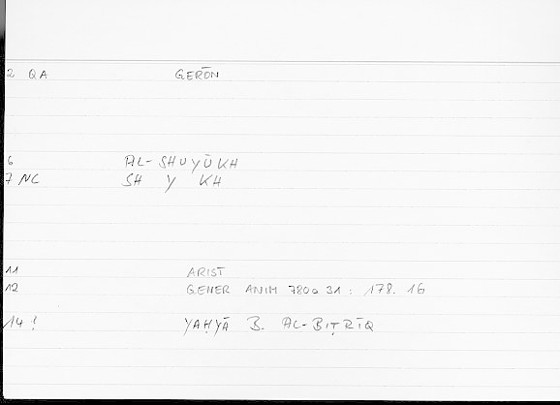 2 QA GERŌN
6 AL-SHUYŪKH
7 NC SH Y KH
11 ARIST
12 GENER ANIM 780a 31 : 178. 16
14 ! YAḤYĀ B. AL-BIṬRĪQ